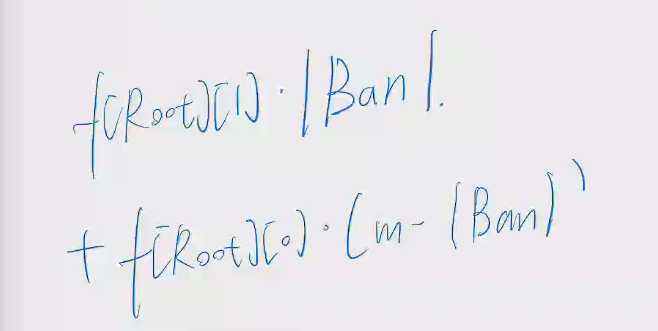 f[Root][1]·|Ban|.
+ f[Root][0]·(m-|Ban|)